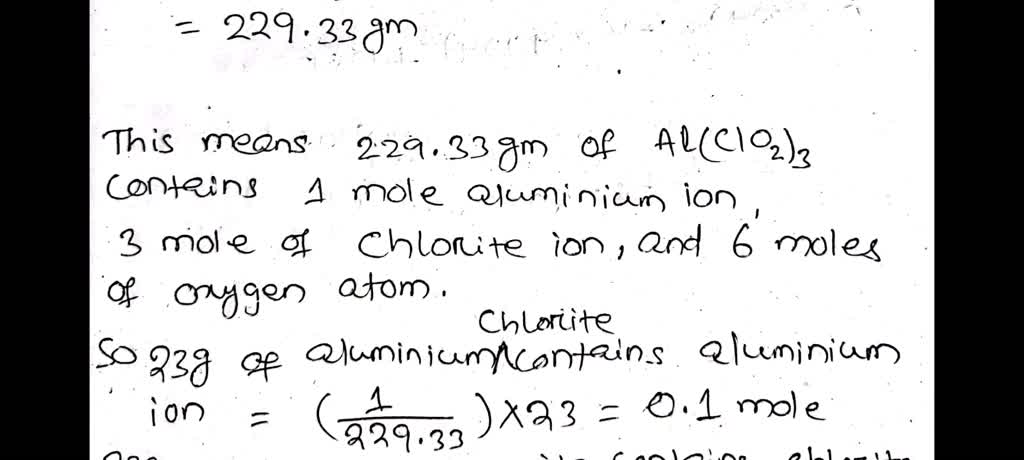 = 229.33gm
This means 229.33gm of Al(ClO2)3
contains 1 mole aluminium ion,
3 mole of chlorite ion, and 6 moles
of oxygen atom.
Chlorite
So 23g of aluminium ^ contains aluminium
ion = (1/229.33) × 23 = 0.1 mole